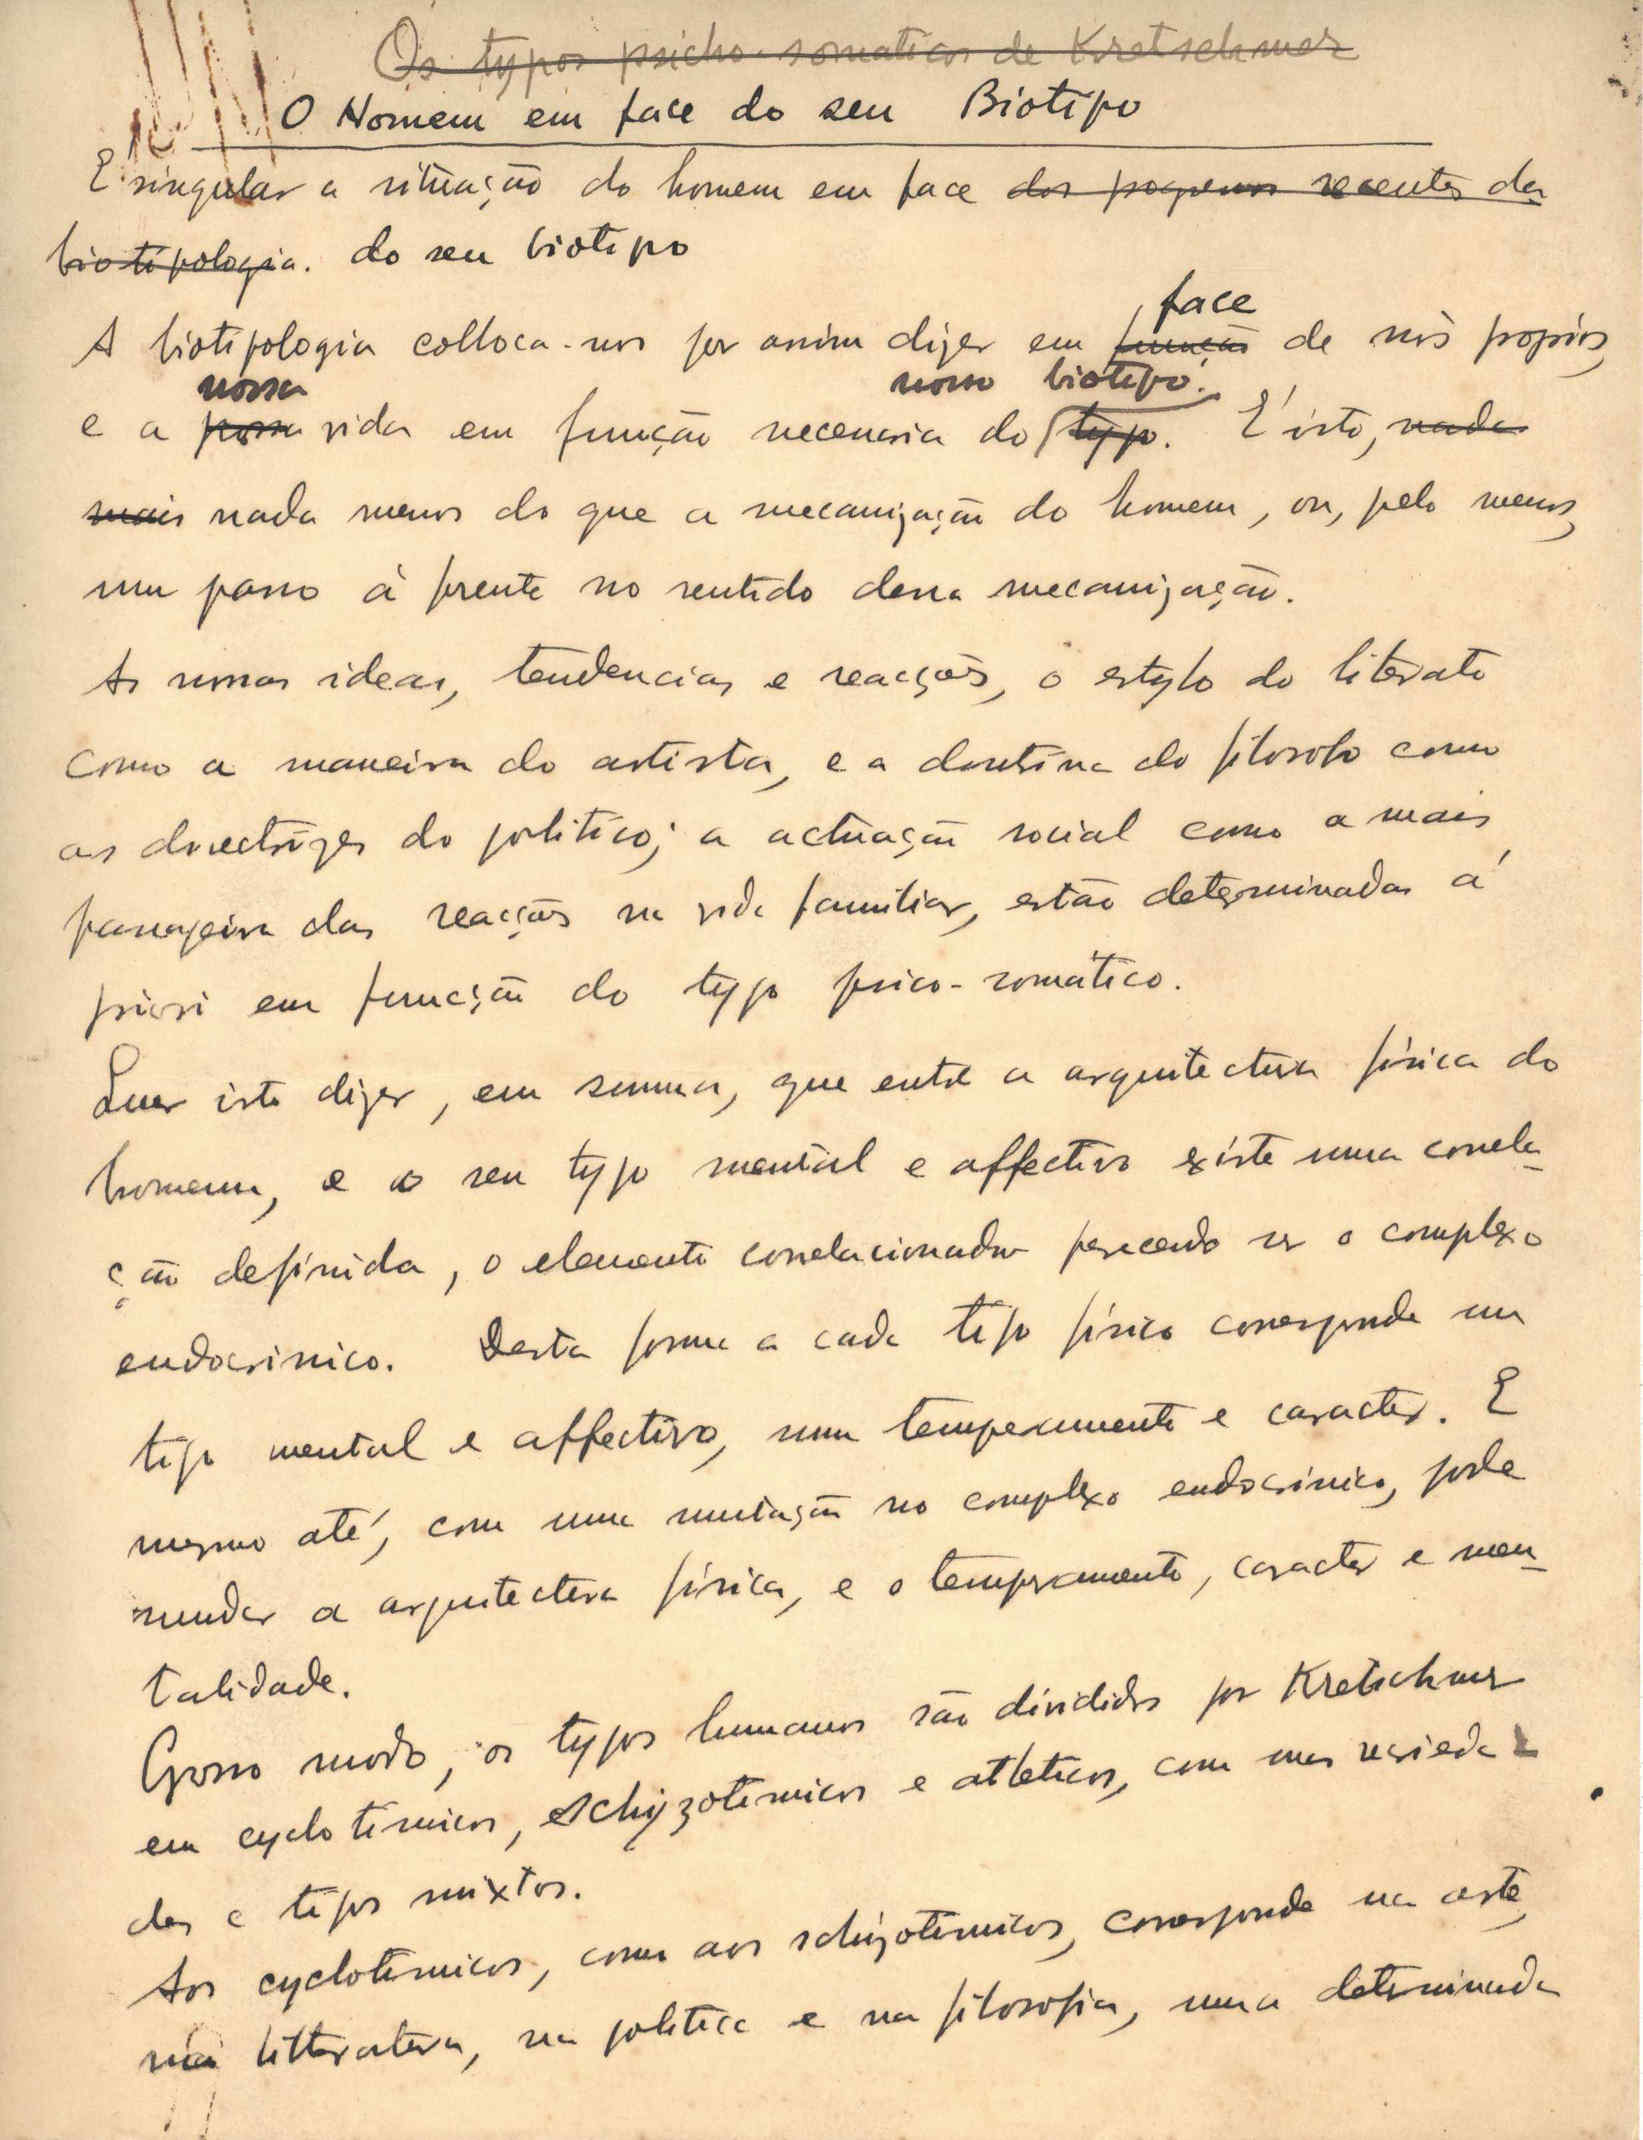 Os typos psicho-somaticos de Kretschmer
O Homem em face do seu Biotipo
É singular a situação do homem em face dos progressos recentes da
biotipologia. do seu biotipo
face
A biotipologia colloca-nos por assim dizer em função de nós proprios,
nossa nosso biotipo.
e a nossa vida em função necessaria do typo. É isto, nada
mais nada menos do que a mecanização do homem, ou, pelo menos,
um passo á frente no sentido dessa mecanização.
As nossas ideas, tendencias e reacções, o estylo do literato
como a maneira do artista, e a doutrina do filosofo como
as directrizes do politico; a actuação social como a mais
passageira das reacções na vida familiar, estão determinadas á
priori em função do typo psico-somático.
Quer isto dizer, em summa, que entre a arquitectura física do
homem, e o seu typo mental e affectivo existe uma correla-
ção definida, o elemento correlacionador parecendo ser o complexo
endocrinico. Desta forma a cada tipo físico corresponde um
tipo mental e affectivo, um temperamento e caracter. E
mesmo até, com uma mutação no complexo endocrínico, pode
mudar a arquitectura física, e o temperamento, caracter e men-
talidade.
Grosso modo, os typos humanos são divididos por Kretschmer
em cyclotímicos, eschyzotimicos e atleticos, com suas varieda-
des e tipos mixtos.
Aos cyclotimicos, como aos schizotímicos, corresponde na arte,
na litteratura, na politica e na filosofia, uma determinada